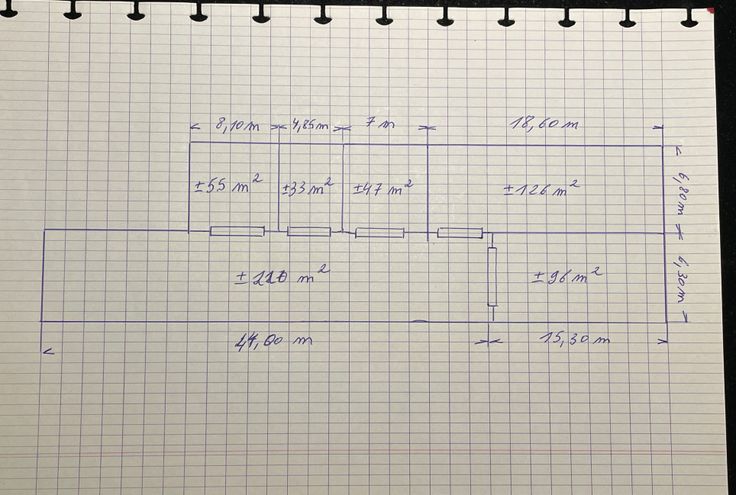 8,10 m 4,85 m 7 m 18,60 m
±55 m² ±33 m² ±47 m² ±126 m² 6,80 m
m² ±96 m² 6,30 m
44,00 m 15,30 m